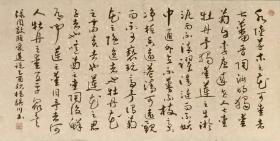 水陸草木之花可愛
者甚蕃晉陶淵明獨愛
菊自李唐來世人甚愛
牡丹予獨愛蓮之出淤
泥而不染濯清漣而不妖
中通外直不蔓不枝香
遠益清亭亭淨植可遠觀
而不可褻玩焉予謂菊
花之隱逸者也牡丹花之
富貴者也蓮花之君子
者也噫菊之愛陶後鮮
有聞蓮之愛同予者何
人牡丹之愛宜乎眾矣
周敦頤愛蓮說